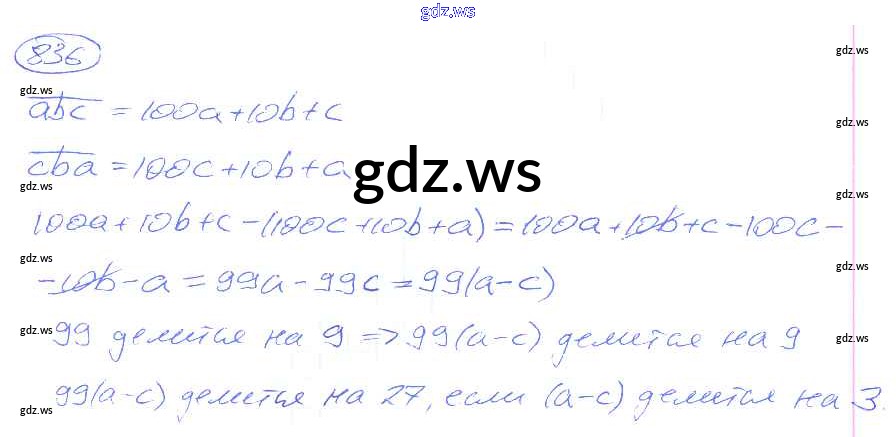 gdz.ws
836
gdz.ws
gdz.ws
abc = 100a + 10b + c
gdz.ws
cba = 100c + 10b + a
gdz.ws
gdz.ws
gdz.ws
100a + 10b + c - (100c + 10b + a) = 100a + 10b + c - 100c -
gdz.ws
gdz.ws
- 10b - a = 99a - 99c = 99(a - c)
gdz.ws
gdz.ws
99 делится на 9 => 99(a - c) делится на 9
gdz.ws
99(a - c) делится на 27, если (a - c) делится на 3.
gdz.ws